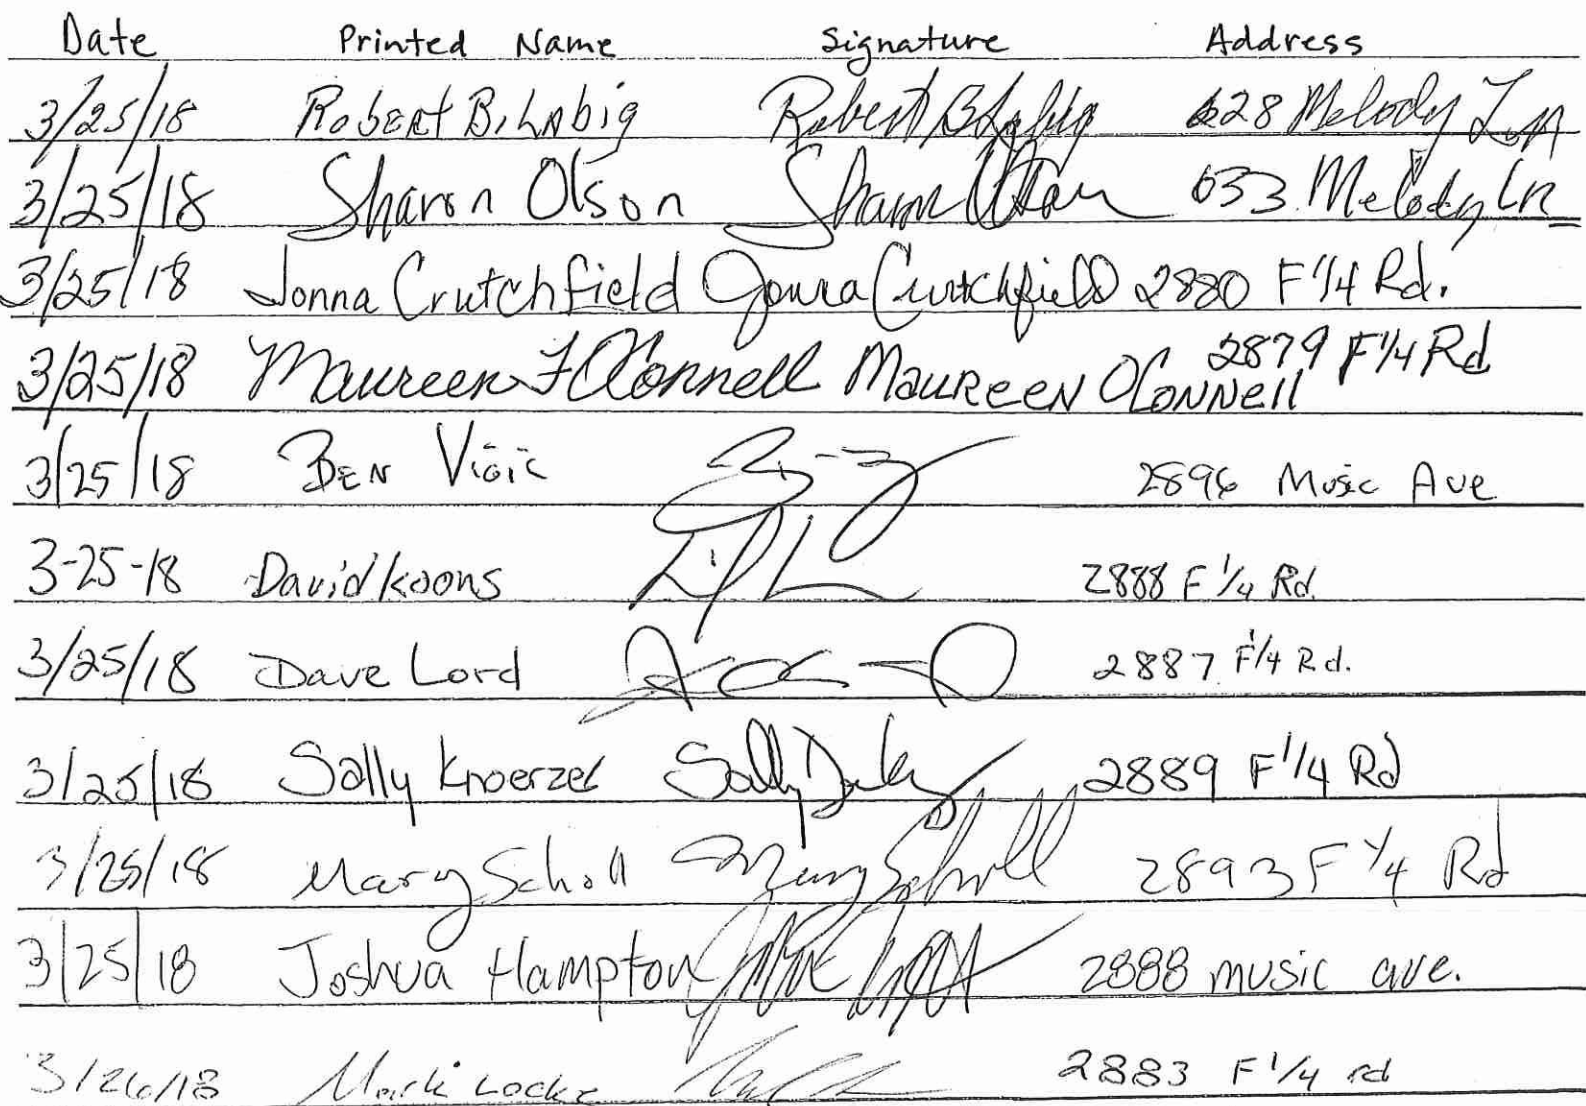 Date Printed Name Signature Address
3/25/18 Robert B. Labig Robert B Labig 628 Melody Ln
3/25/18 Sharon Olson Sharon Olson 633 Melody Ln
3/25/18 Jonna Crutchfield Jonna Crutchfield 2880 F 1/4 Rd.
3/25/18 Maureen F O'Connell Maureen O'Connell 2879 F 1/4 Rd
3/25/18 Ben 2896 Music Ave
3-25-18 David Koons 2888 F 1/4 Rd.
3/25/18 Dave Lord 2887 F 1/4 Rd.
3/25/18 Sally Knoerzel Sally 2889 F 1/4 Rd
3/25/18 Mary Scholl Mary Scholl 2893 F 1/4 Rd
3/25/18 Joshua Hampton 2888 music ave.
3/26/18 Mark Locke 2883 F 1/4 rd